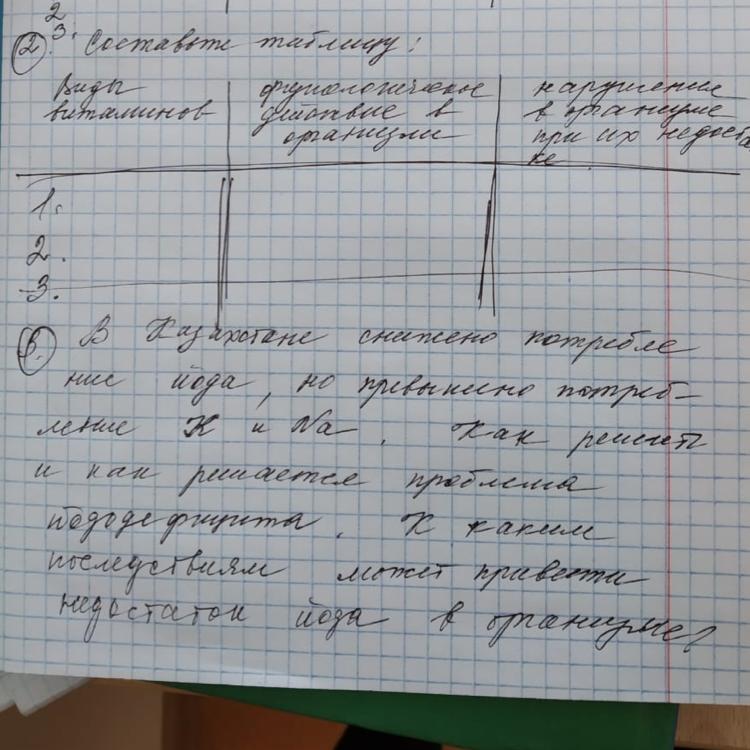 2
3.
2. Составьте таблицу:
Виды витаминов
физиологическое действие в организме
нарушение в организме при их недостатке
1.
2.
3.
3. В Казахстане снижено потребле
ние йода, но превышено потреб-
ление K и Na. Как решить
и как решается проблема
йододефицита. К каким
последствиям может привести
недостаток йода в организме?